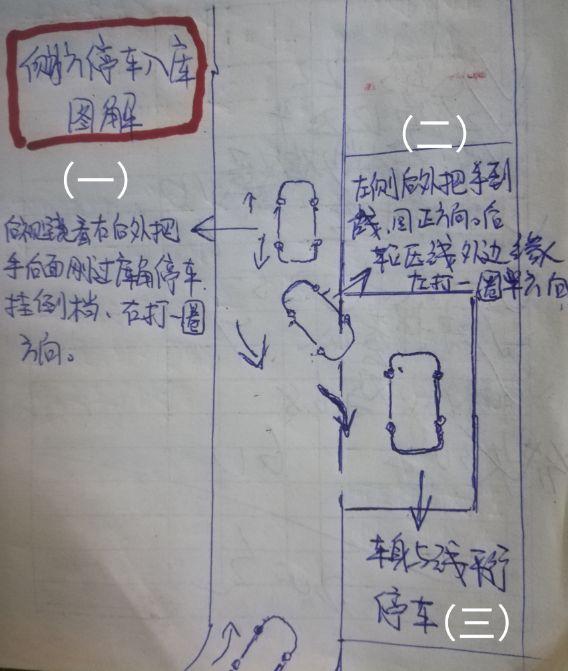 侧方停车入库
图解
(一)
后视镜看右后外把
手后面刚过库角停车
挂倒档、右打一圈
方向。
(二)
左侧后外把手到
线,回正方向。后
轮压线外边缘
左打一圈半方向
车身与线平行
停车(三)